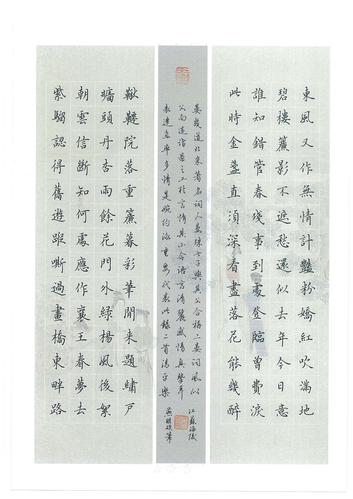 東風又作無情計艷粉嬌紅吹滿地
碧樓簾影不遮愁還似去年今日意
誰知錯管春殘事到處登臨曾費淚
此時金盞直須深看盡落花能幾醉
晏幾道北宋著名詞人晏殊七子與其父合稱二晏詞風似
父而造詣過之工於言情其小令語言清麗感情真摯
表達直率多情是婉約派重要代表此錄二首清平樂
江蘇海陵
鞦韆院落重簾暮彩筆閒來題繡戶
牆頭丹杏雨餘花門外綠楊風後絮
朝雲信斷知何處應作襄王春夢去
紫騮認得舊遊蹤嘶過畫橋東畔路